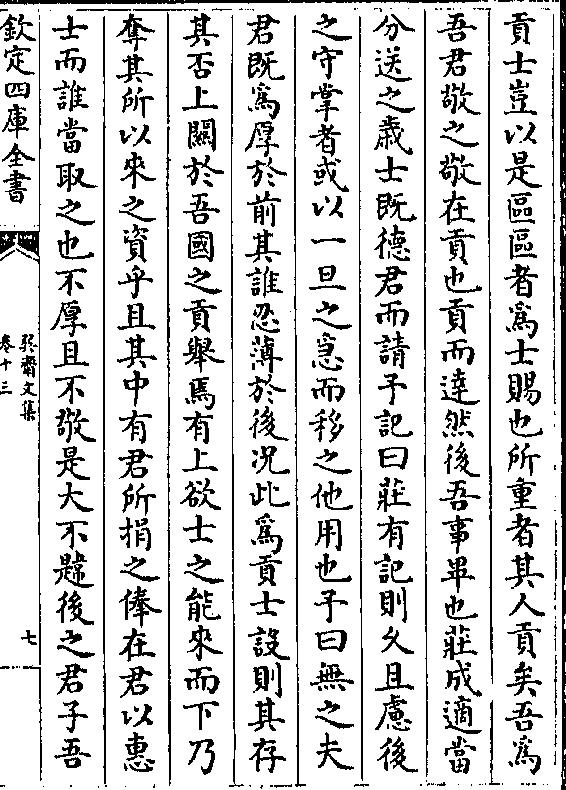 貢士豈以是區區者爲士賜也所重者其人貢矣吾爲
吾君敬之敬在貢也貢而達然後吾事畢也莊成適當
分送之歲士既德君而請予記曰莊有記則久且慮後
之守掌者或以一旦之急而移之他用也予曰無之夫
君既爲厚於前其誰忍薄於後况此爲貢士設則其存
其否上關於吾國之貢舉焉有上欲士之能來而下乃
奪其所以來之資乎且其中有君所捐之俸在君以惠
士而誰當取之也不厚且不敬是大不韙後之君子吾
欽定四庫全書
巽齋文集
卷十三
七